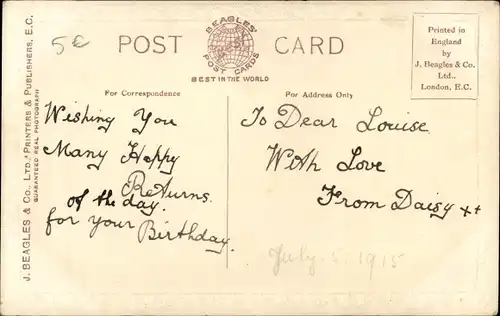 5€
POST CARD
BEAGLES'
POST CARDS
BEST IN THE WORLD
Printed in
England
by
J. Beagles & Co.
Ltd.,
London, E.C.
J. BEAGLES & CO., LTD., PRINTERS & PUBLISHERS, E.C.
GUARANTEED REAL PHOTOGRAPH
For Correspondence
For Address Only
Wishing You
Many Happy
Returns.
of the day.
for your Birthday.
To Dear Louise
With Love
From Daisy ++
July. 5. 1915